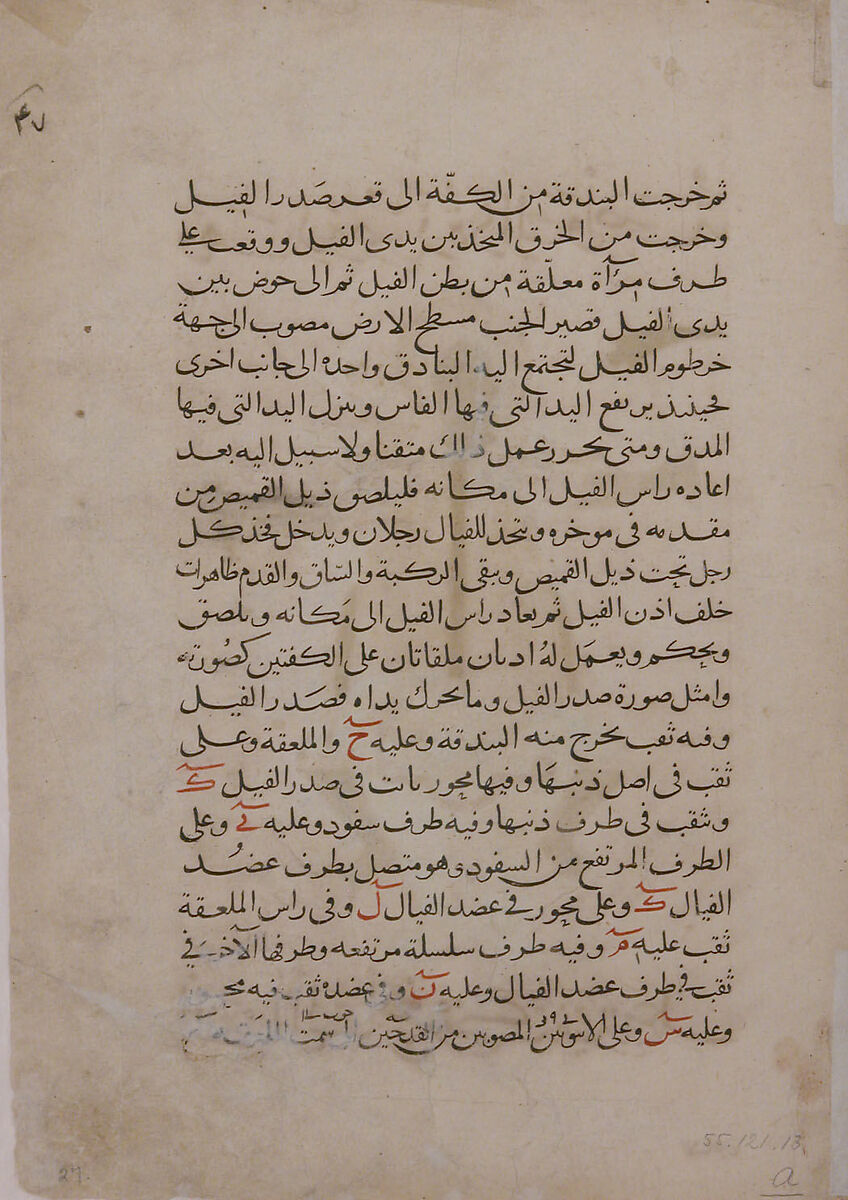 ٤٧
ثم خرجت البندقة من الكفّة الى قعر صَدر الفيل
وخرجت من الخرق المتخذ بين يدى الفيل ووقعت على
طرف مرآة معلّقة من بطن الفيل ثم الى حوض بين
يدى الفيل قصير الجنب مسطح الارض مصوب الى جهة
خرطوم الفيل لتجتمع اليه البنادق واحده الى جانب اخرى
فحينئذ يرتفع اليد التى فيها الفاس وينزل اليد التى فيها
المدق ومتى يحرر عمل ذلك متقنا ولا سبيل اليه بعد
اعاده راس الفيل الى مكانه فليلصق ذيل القميص من
مقدمه فى موخره ويتخذ للفيال رجلان ويدخل فخذ كل
رجل تحت ذيل القميص ويبقى الركبة والسّاق والقدم ظاهرات
خلف اذن الفيل ثم يعاد راس الفيل الى مَكانه ويلصق
ويحكم ويعمَل لهُ اذنان ملقاتان على الكفتين كصُورته
وامثل صورة صدر الفيل وما يحرك يداه فصَدر الفيل
وفيه ثقب يخرج منه البندقة وعليه ح والملعقة وعلى
ثقب فى اصل ذنبهَا وفيها محور بابت فى صدر الفيل ك
وثقب فى طرف ذنبها وفيه طرف سفود وعليه ى وعلى
الطرف المرتفع من السفودى هو متصل بطرف عضُد
الفيال ك وعلى محور فى عضد الفيال ل وفى راس الملعقة
ثقب عليه م وفيه طرف سلسلة مرتفعه وطرفها الآخر فى
ثقب فى طرف عضد الفيال وعليه ن وفى عضده ثقب فيه محـ
وعليه س وعلى المصوبين من القدحين
55.121.13
a
27.